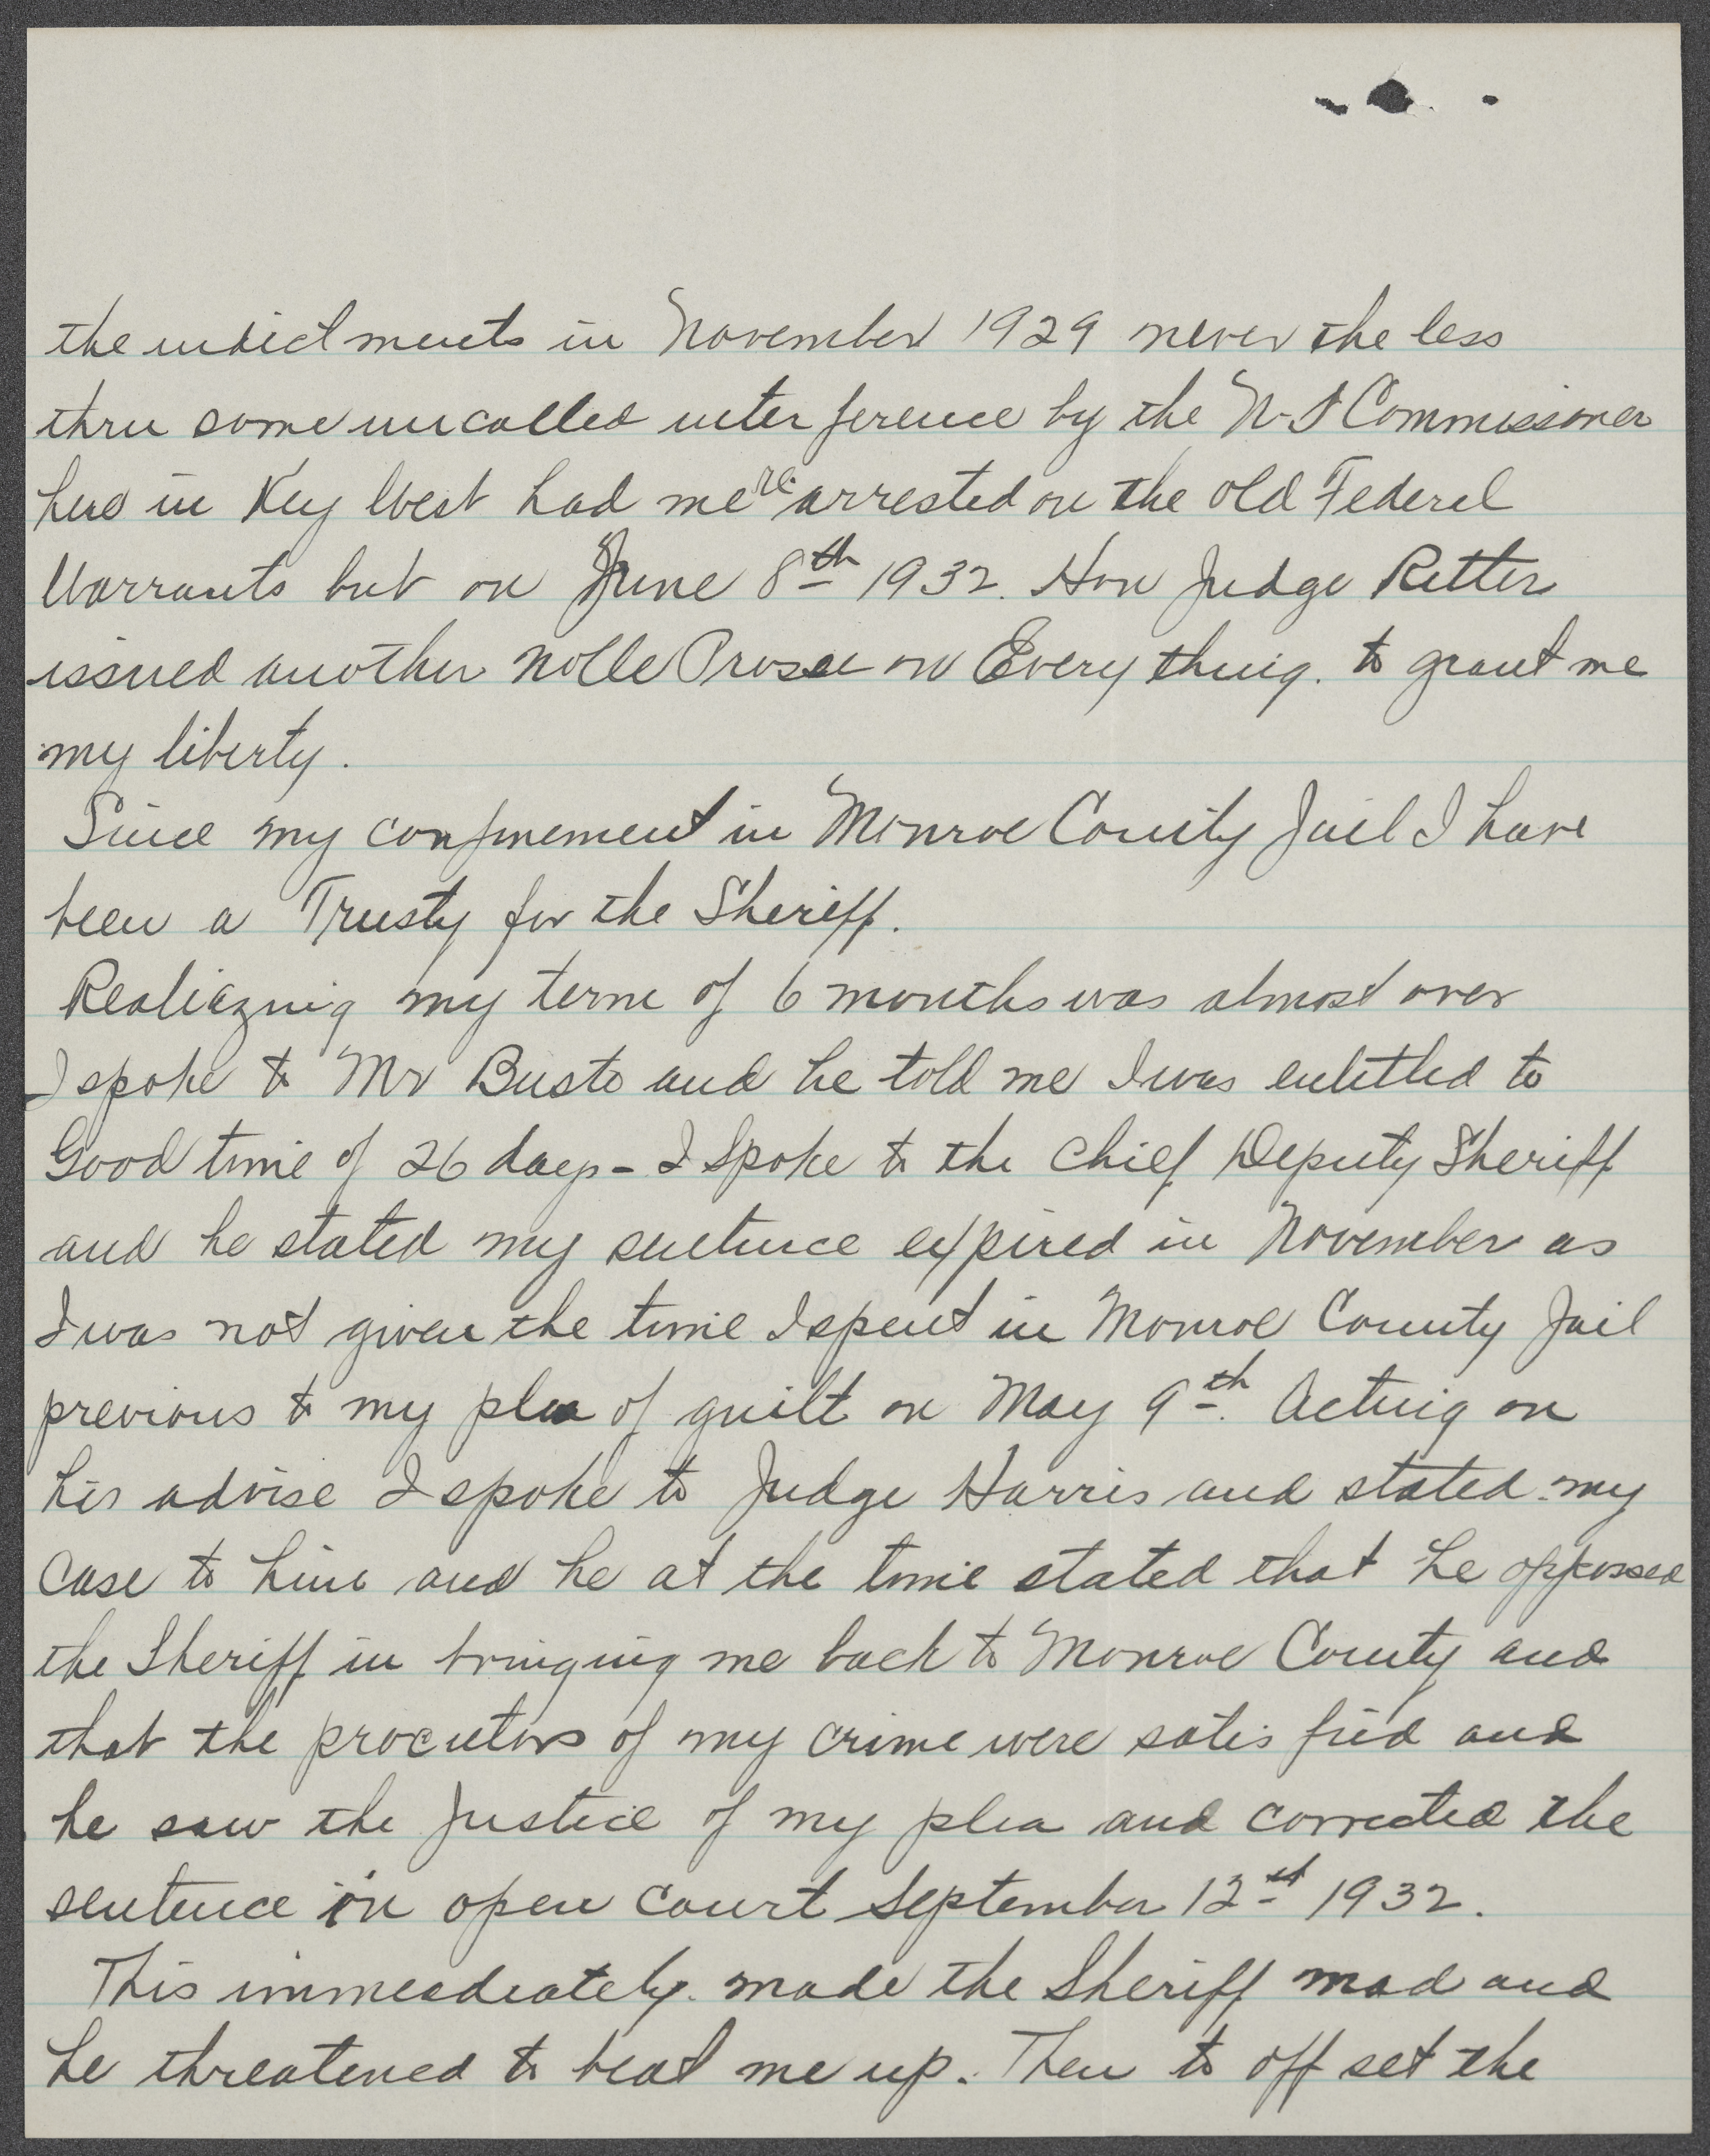 the indictments in November 1929 never the less
thru some uncalled inter ference by the U-S Commissioner
here in Key West had me re-arrested on the old Federal
Warrants but on June 8th 1932. Hon Judge Ritter
issued another Nolle Prosse on Every thing. to grant me
my liberty.
Since my confinement in Monroe County Jail I have
been a Trusty for the Sheriff.
Realiazing my term of 6 months was almost over
I spoke to Mr Busto and he told me I was entitled to
Good time of 26 days - I spoke to the Chief Deputy Sheriff
and he stated my sentence expired in November as
I was not given the time I spent in Monroe County Jail
previous to my plea of guilt on May 9th. Acting on
his advise I spoke to Judge Harris and stated my
case to him and he at the time stated that he oppossed
the Sheriff in bringing me back to Monroe County and
that the procutors of my crime were satis fied and
he saw the Justice of my plea and corrected the
sentence in open court September 12st 1932.
This immeadiately made the Sheriff mad and
he threatened to beat me up. Then to off set the